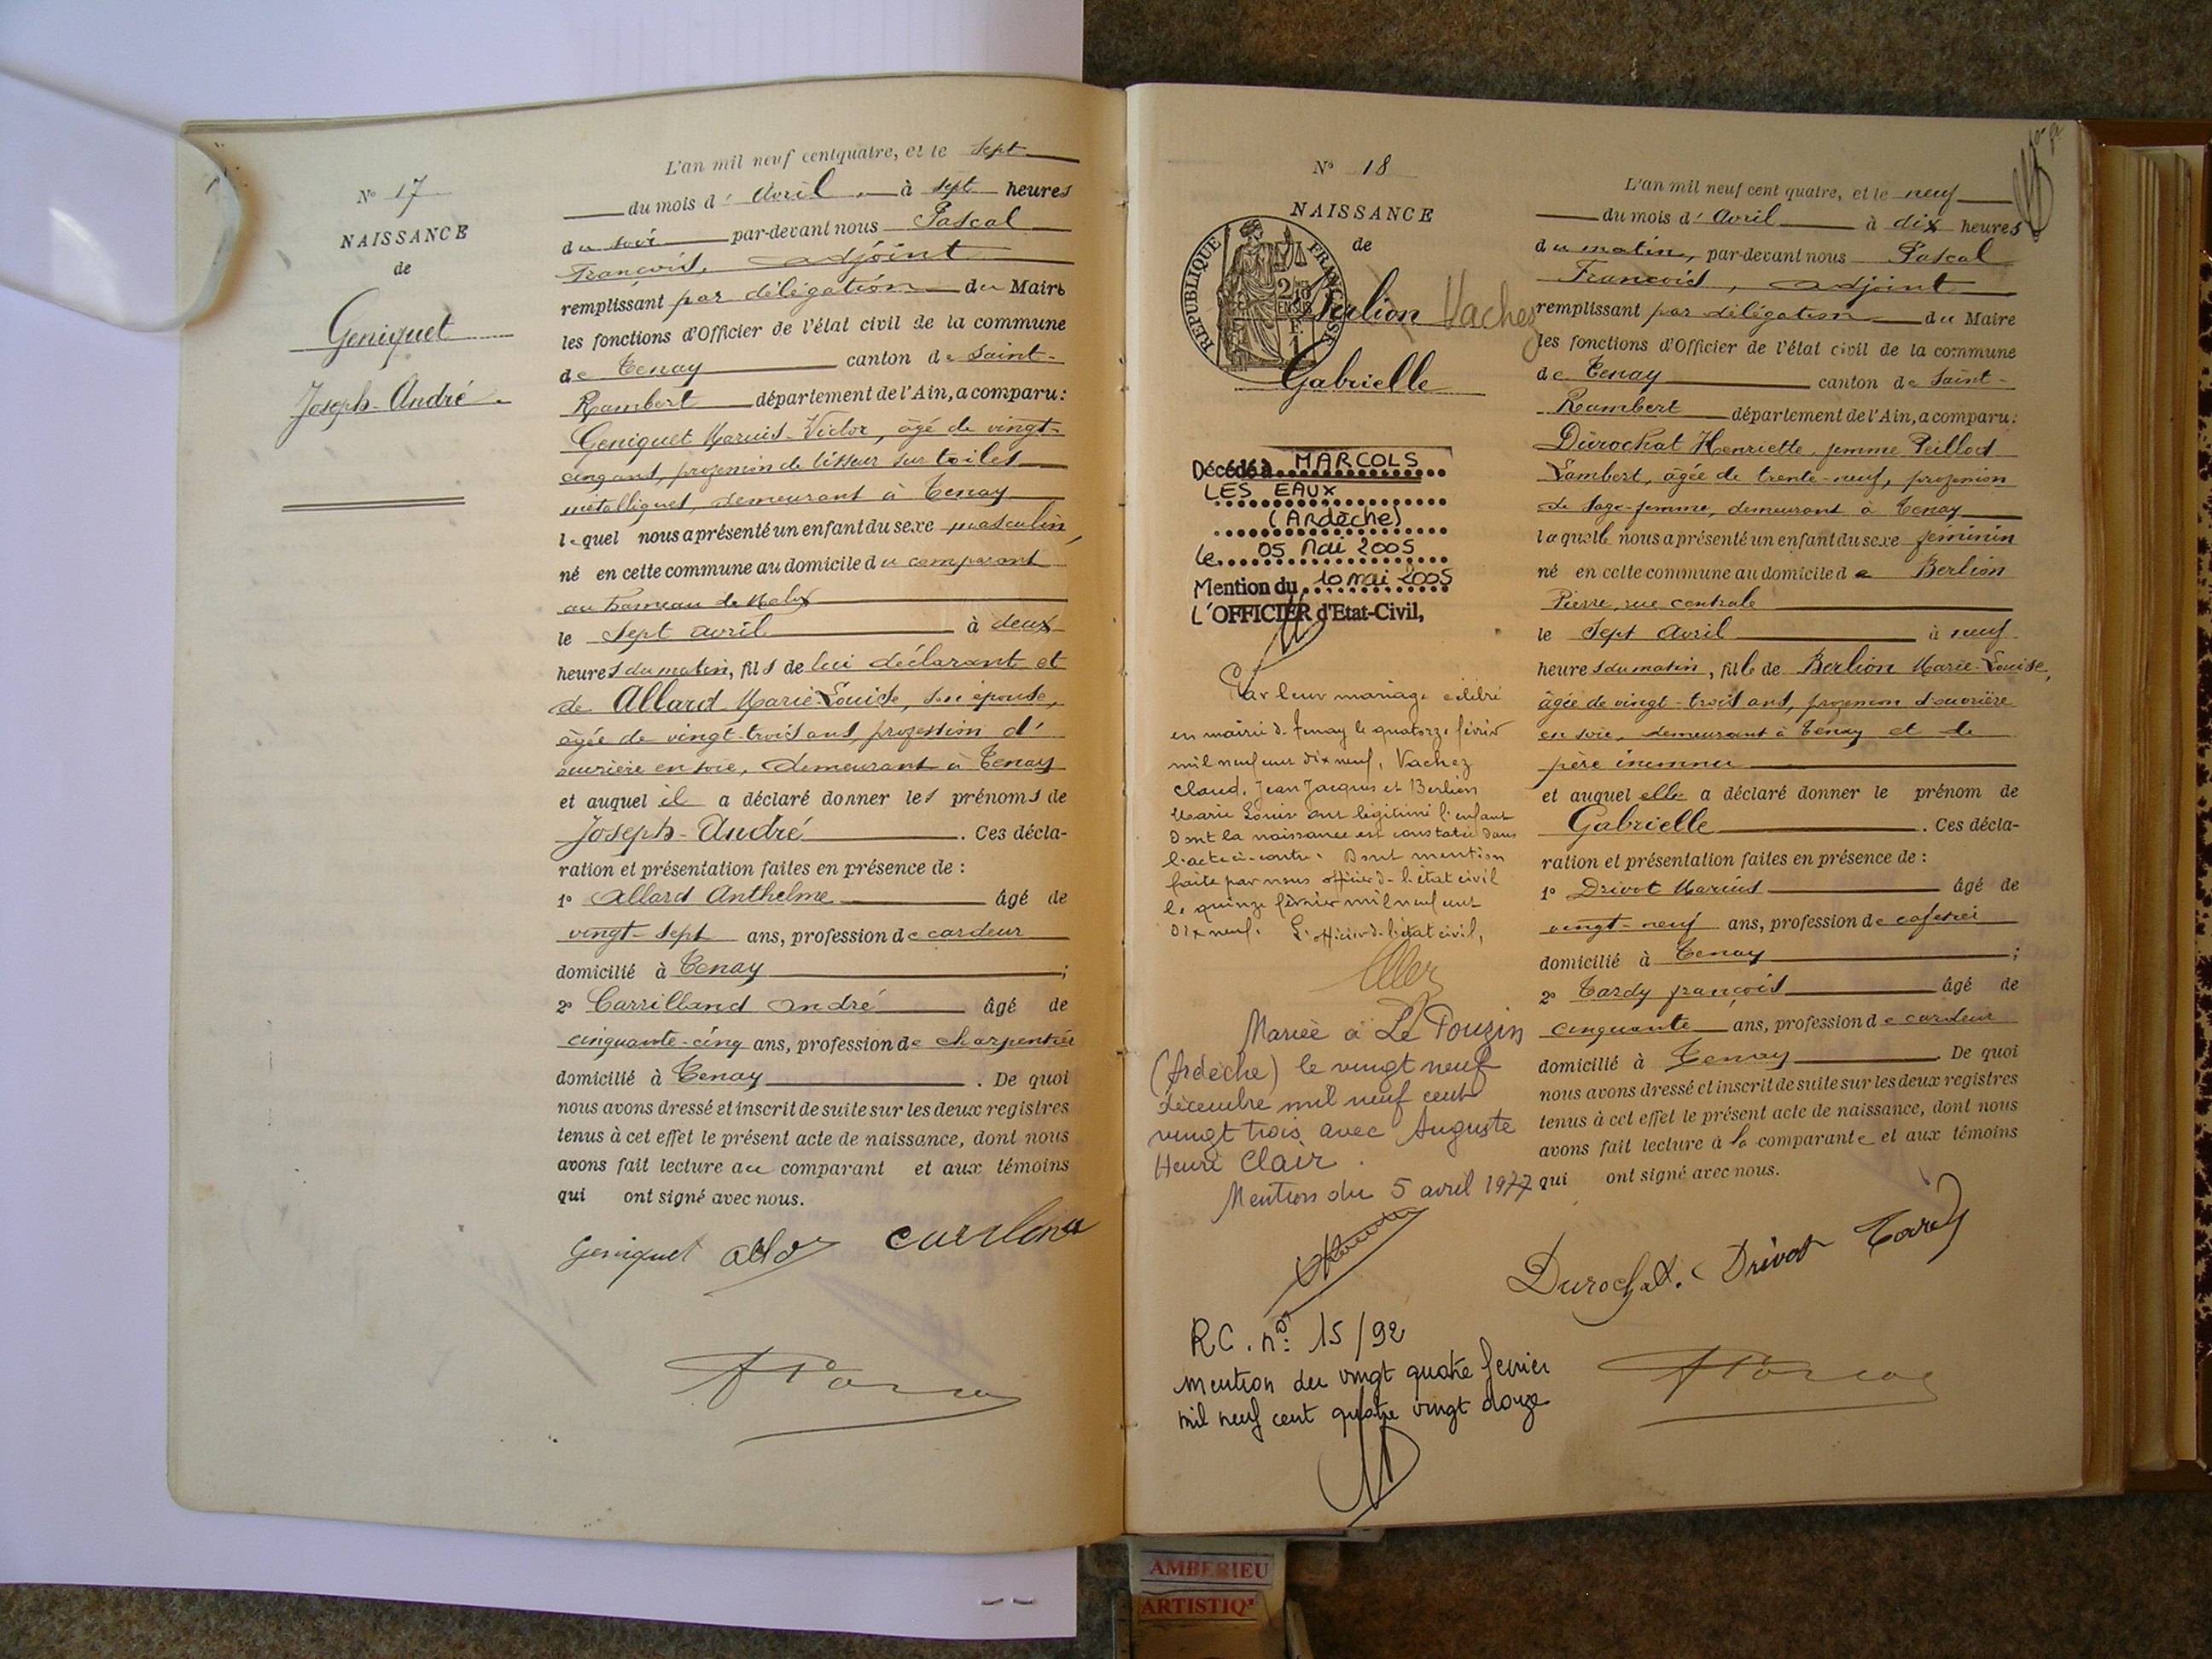 N° 17
NAISSANCE
de
Geniquet
Joseph-André
L'an mil neuf cent quatre, et le sept
du mois d'Avril à sept heures
du soir par-devant nous Pascal
François, adjoint
remplissant par délégation du Maire
les fonctions d'Officier de l'état civil de la commune
de Tenay canton de Saint-
Rambert département de l'Ain, a comparu:
Geniquet Marius-Victor, âgé de vingt-
cinq ans, profession de tisseur sur toiles
métalliques, demeurant à Tenay
lequel nous a présenté un enfant du sexe masculin,
né en cette commune au domicile du comparant
au hameau de
le sept avril à deux
heures du matin, fils de lui déclarant et
de Allard Marie-Louise, son épouse,
âgée de vingt-trois ans, profession d'
ouvrière en soie, demeurant à Tenay
et auquel il a déclaré donner les prénoms de
Joseph-André. Ces décla-
ration et présentation faites en présence de :
1° Allard Anthelme âgé de
vingt-sept ans, profession de cardeur
domicilié à Tenay ;
2° Carrilland André âgé de
cinquante-cinq ans, profession de charpentier
domicilié à Tenay. De quoi
nous avons dressé et inscrit de suite sur les deux registres
tenus à cet effet le présent acte de naissance, dont nous
avons fait lecture au comparant et aux témoins
qui ont signé avec nous.
Geniquet
N° 18
NAISSANCE
de
REPUBLIQUE FRANÇAISE
Berlion Vachez
Gabrielle
Décédé à MARCOLS
LES EAUX
(Ardèche)
le 05 Mai 2005
Mention du 10 mai 2005
L'OFFICIER d'Etat-Civil,
Par leur mariage célébré
en mairie de Tenay le quatorze février
mil neuf cent dix neuf, Vachez
Claude Jean Jacques et Berlion
Marie Louise ont légitimé l'enfant
dont la naissance est constatée dans
l'acte ci-contre. Dont mention
faite par nous officier de l'état civil
le quinze février mil neuf cent
dix neuf. L'officier de l'état civil,
Mariée à Le Pouzin
(Ardèche) le vingt neuf
décembre mil neuf cent
vingt trois avec Auguste
Henri Clair.
Mention du 5 avril 1977
R.C. n°: 15/92
mention du vingt quatre fevrier
mil neuf cent quatre vingt douze
L'an mil neuf cent quatre, et le neuf
du mois d'Avril à dix heures
du matin, par-devant nous Pascal
François, adjoint
remplissant par délégation du Maire
les fonctions d'Officier de l'état civil de la commune
de Tenay canton de Saint-
Rambert département de l'Ain, a comparu:
Durochat Henriette, femme Peillod
Lambert, âgée de trente-neuf, profession
de sage-femme, demeurant à Tenay
laquelle nous a présenté un enfant du sexe féminin
né en cette commune au domicile de Berlion
Pierre, rue centrale
le sept Avril à neuf
heures du matin, fille de Berlion Marie-Louise,
âgée de vingt-trois ans, profession d'ouvrière
en soie, demeurant à Tenay et de
père inconnu
et auquel elle a déclaré donner le prénom de
Gabrielle. Ces décla-
ration et présentation faites en présence de :
1° Drivot Marius âgé de
vingt-neuf ans, profession de cafetier
domicilié à Tenay ;
2° Tardy françois âgé de
cinquante ans, profession de cardeur
domicilié à Tenay. De quoi
nous avons dressé et inscrit de suite sur les deux registres
tenus à cet effet le présent acte de naissance, dont nous
avons fait lecture à la comparante et aux témoins
qui ont signé avec nous.
Durochat. Drivot Tardy
AMBERIEU
ARTISTIQ